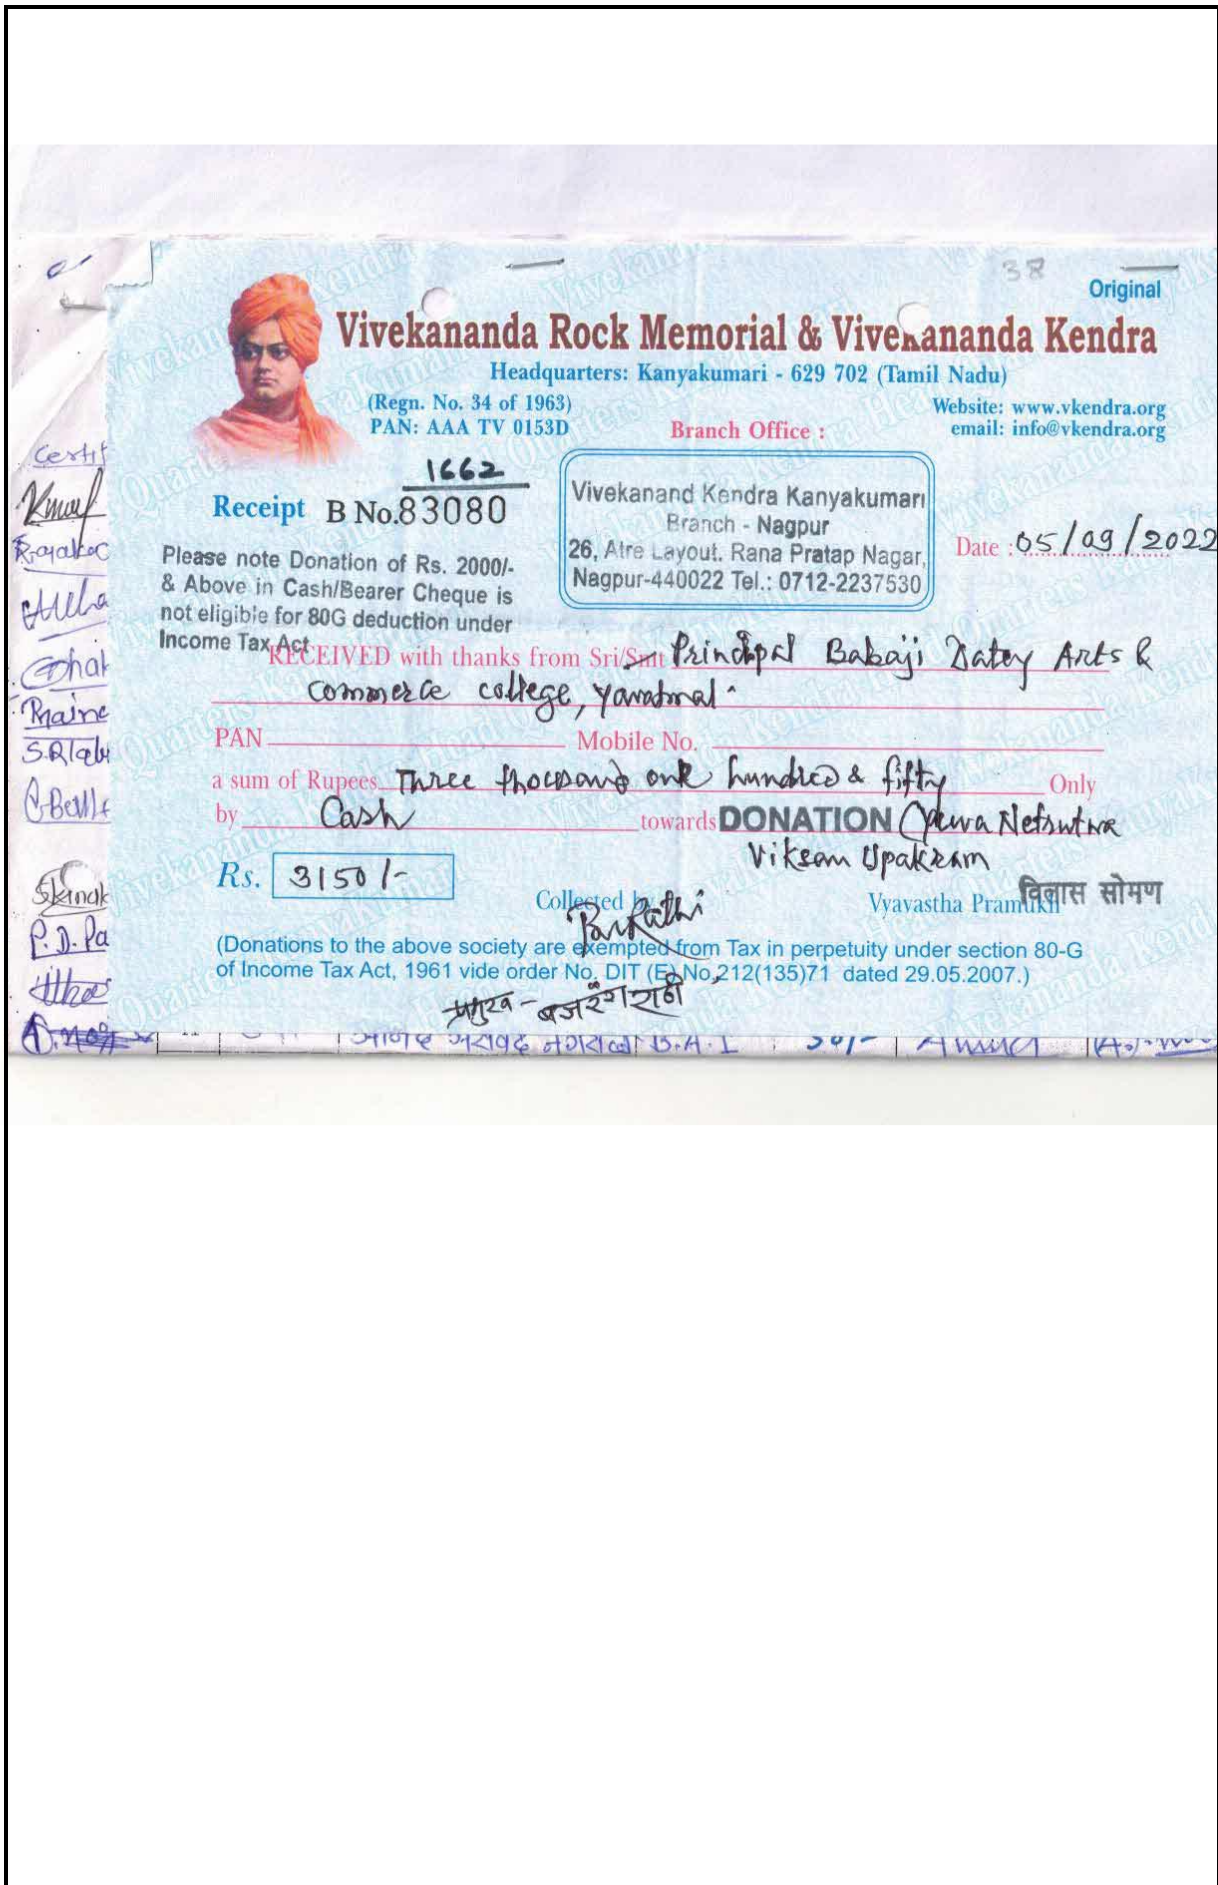 38
Original
Vivekananda Rock Memorial & Vivekananda Kendra
Headquarters: Kanyakumari - 629 702 (Tamil Nadu)
(Regn. No. 34 of 1963)
Website: www.vkendra.org
PAN: AAA TV 0153D
Branch Office :
email: info@vkendra.org
1662
Receipt B No.83080
Vivekanand Kendra Kanyakumari
Branch - Nagpur
26, Atre Layout. Rana Pratap Nagar,
Nagpur-440022 Tel.: 0712-2237530
Date : 05/09/2022
Please note Donation of Rs. 2000/-
& Above in Cash/Bearer Cheque is
not eligible for 80G deduction under
Income Tax Act
RECEIVED with thanks from Sri/Smt Principal Babaji Datey Arts &
commerce college, Yavatmal.
PAN Mobile No.
a sum of Rupees Three thousand one hundred & fifty Only
by Cash towards DONATION Netrutwa
Upakram
Rs. 3150/-
Collected by Vyavastha Pramukh विलास सोमण
(Donations to the above society are exempted from Tax in perpetuity under section 80-G
of Income Tax Act, 1961 vide order No. DIT (E) No,212(135)71 dated 29.05.2007.)
प्रमुख - बजरंग राठी